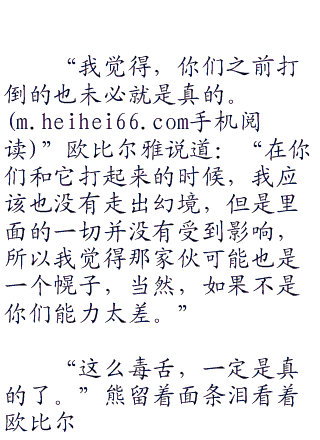 “我觉得，你们之前打
倒的也未必就是真的。
(m.heihei66.com手机阅
读)”欧比尔雅说道：“在你
们和它打起来的时候，我应
该也没有走出幻境，但是里
面的一切并没有受到影响，
所以我觉得那家伙可能也是
一个幌子，当然，如果不是
你们能力太差。”
“这么毒舌，一定是真
的了。”熊留着面条泪看着
欧比尔